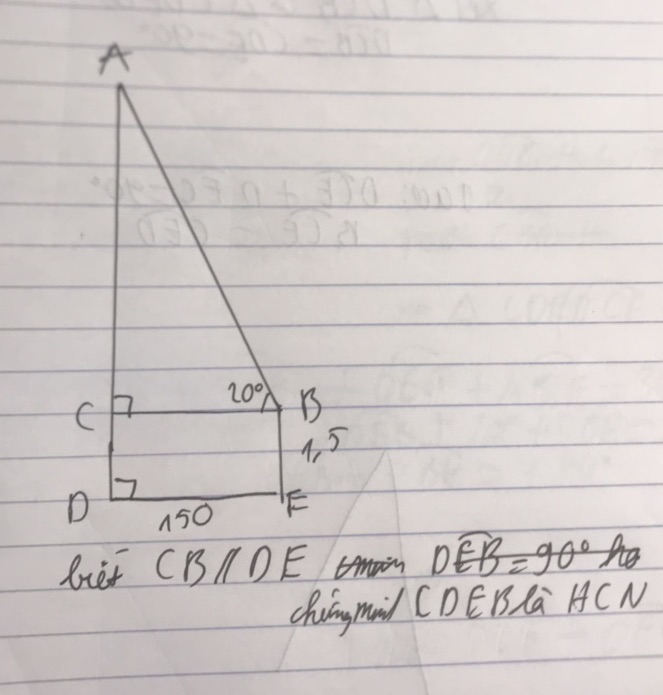 A
C 20° B
1,5
D E
150
biết CB // DE DEB = 90°
chứng minh CDEB là HCN